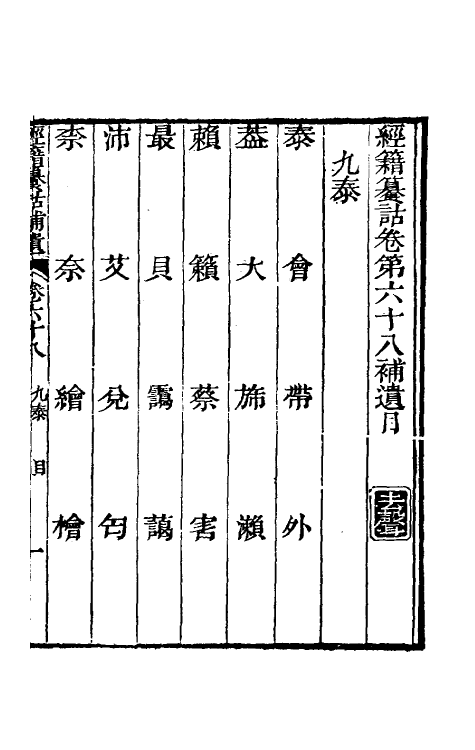 經籍籑詁卷第六十八補遺目
九泰
泰 會 帶 外
葢 大 斾 瀨
賴 籟 蔡 害
最 貝 靄 藹
沛 艾 兌 匄
柰 奈 繪 檜
經籍籑詁補遺 卷六十八 九泰 目 一